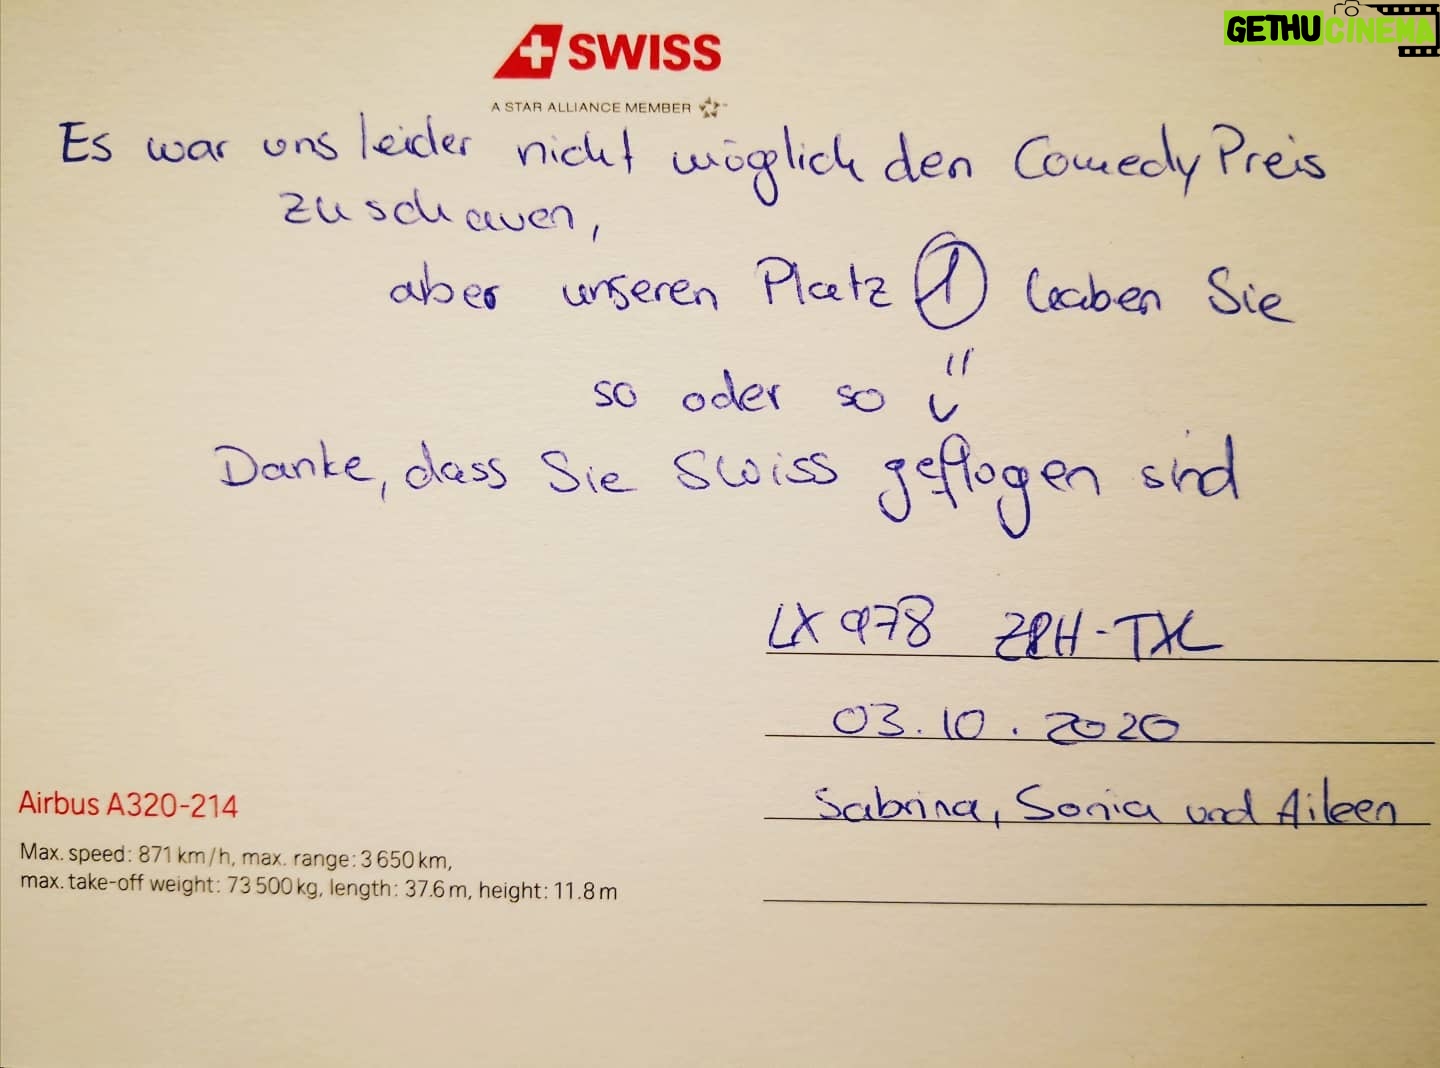 GETHU CINEMA
SWISS
A STAR ALLIANCE MEMBER
Es war uns leider nicht möglich den Comedy Preis
zu schauen,
aber unseren Platz 1 haben Sie
so oder so
Danke, dass Sie Swiss geflogen sind
LX 978 ZRH-TXL
03.10.2020
Sabrina, Sonia und Aileen
Airbus A320-214
Max. speed: 871 km/h, max. range: 3 650 km,
max. take-off weight: 73 500 kg, length: 37.6 m, height: 11.8 m